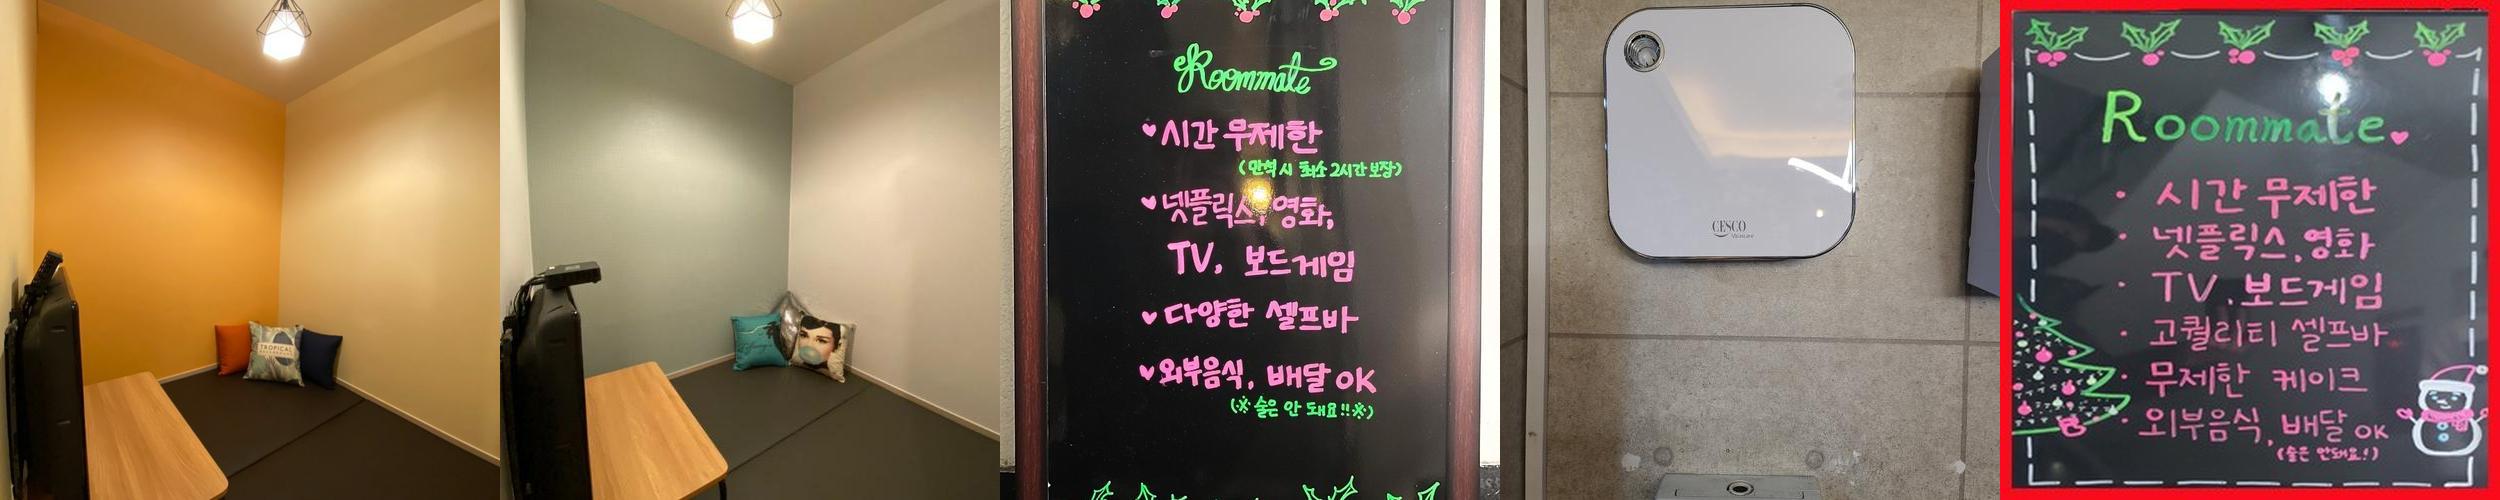 TROPICAL
Roommate
시간 무제한
(만석 시 최소 2시간 보장)
넷플릭스, 영화,
TV, 보드게임
다양한 셀프바
외부음식, 배달 OK
(※ 술은 안 돼요!!※)
CESCO
Roommate
시간 무제한
넷플릭스, 영화
TV, 보드게임
고퀄리티 셀프바
무제한 케이크
외부음식, 배달 OK
(술은 안돼요!)